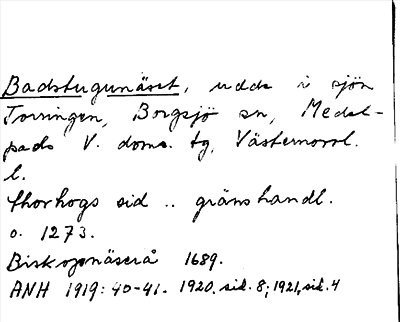 Badstugunäset, udde i sjön
Torringen, Borgsjö sn, Medel-
pads V. doms. tg, Västernorrl.
l.
Thorhogs sid .. gränshandl.
o. 1273.
Biskopsnäserå 1689.
ANH 1919: 40-41. 1920. sid. 8; 1921, sid. 4